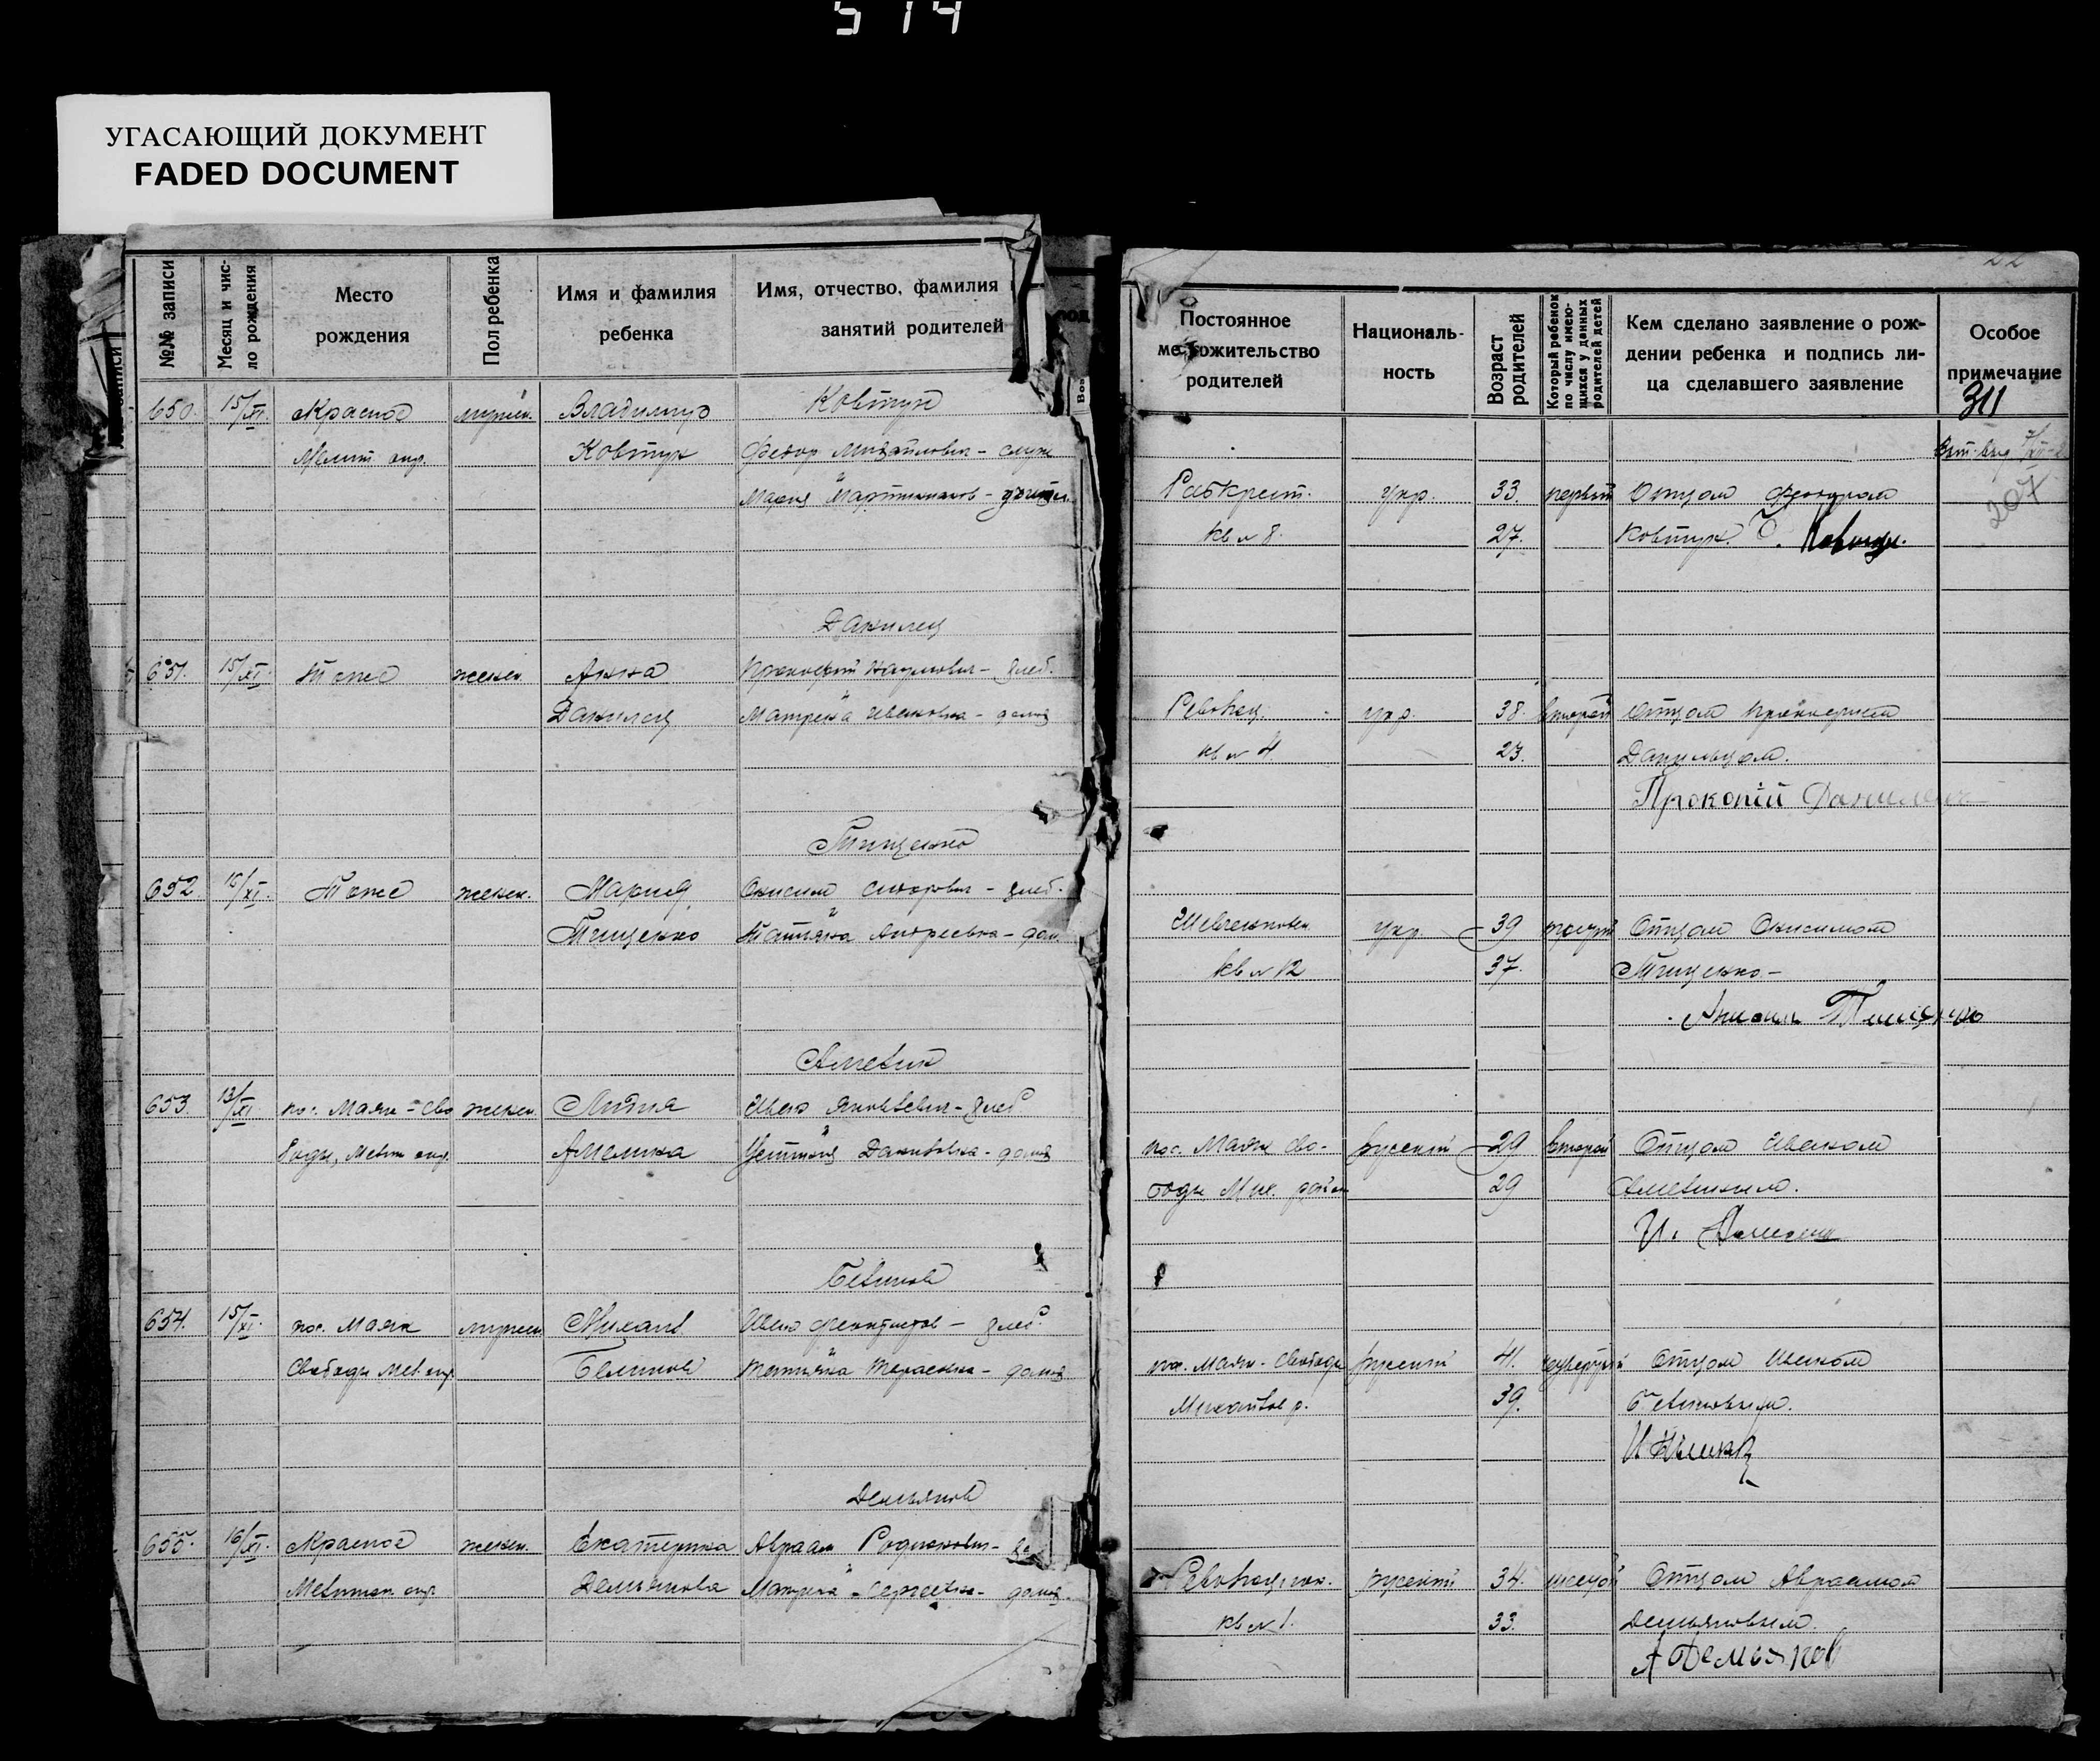 514
УГАСАЮЩИЙ ДОКУМЕНТ
FADED DOCUMENT
№№ записи
Месяц и чис-
ло рождения
Место
рождения
Пол ребенка
Имя и фамилия
ребенка
Имя, отчество, фамилия
занятий родителей
650. 15/XI. Красное мужск. Владимир Ковтун
Мелит. окр. Ковтун Федор Михайлович - служ
Мария Мартыновна -
Данилец
651. 15/XI. Тоже женск. Анна Прокофий Наумович - хлеб.
Данилец Матрена Ивановна - домох
Тищенко
652. 16/XI. Тоже женск. Мария Онисим Сидорович - хлеб.
Тищенко Татьяна Андреевна - дом
Амелин
653. 13/XI пос. Маяк-Сво женск. Лидия Иван Яковлевич - хлеб
боды, Мелит окр. Амелина Устинья Даниловна - домох
Белинов
654. 15/XI. пос. Маяк мужск. Михаил Иван - хлеб.
Свободы Мел. окр. Белинов Татьяна Тарасовна - домох
Демьянов
655. 16/XI. Красное женск. Екатерина Авраам Родионович -
Мелитоп. окр. Демьянова Матрена Сергеевна - домох.
22
Постоянное
местожительство
родителей
Националь-
ность
Возраст
родителей
Который ребенок
по числу имею-
щихся у данных
родителей детей
Кем сделано заявление о рож-
дении ребенка и подпись ли-
ца сделавшего заявление
Особое
примечание
311
207
Рабкрест. укр. 33. первый Отцом Федором
кв № 8. 27. Ковтун. Ковтун.
укр. 38. второй Отцом Прокофием
кв № 4. 23. Данильцом.
Прокопій Данилец
Шевченковск. укр. 39 Отцом Онисимом
кв № 12 37. Тищенко -
Тищенко
пос. Маяк Сво- русский 29 второй Отцом Иваном
боды Мих. район 29 Амелиным.
И. Амелин
пос. Маяк-Свободы русский 41. четверый Отцом Иваном
Михайлов р. 39. Белиновым.
русский 34. шестой Отцом Авраамом
кв № 1. 33. Демьяновым.
А Демьянов